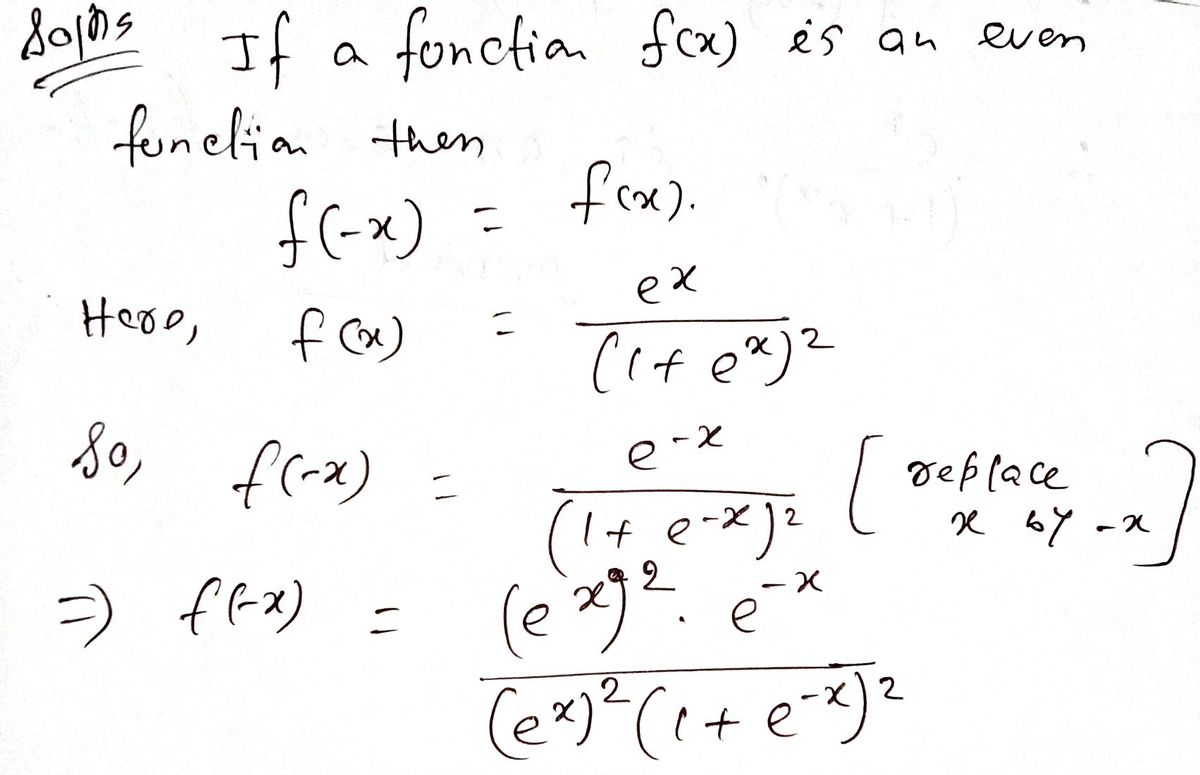 Solns If a function f(x) is an even
function then
f(-x) = f(x).
Here, f(x) = e^x / (1 + e^x)^2
So, f(-x) = e^-x / (1 + e^-x)^2 [replace x by -x]
=> f(-x) = (e^x)^2 . e^-x / (e^x)^2 (1 + e^-x)^2